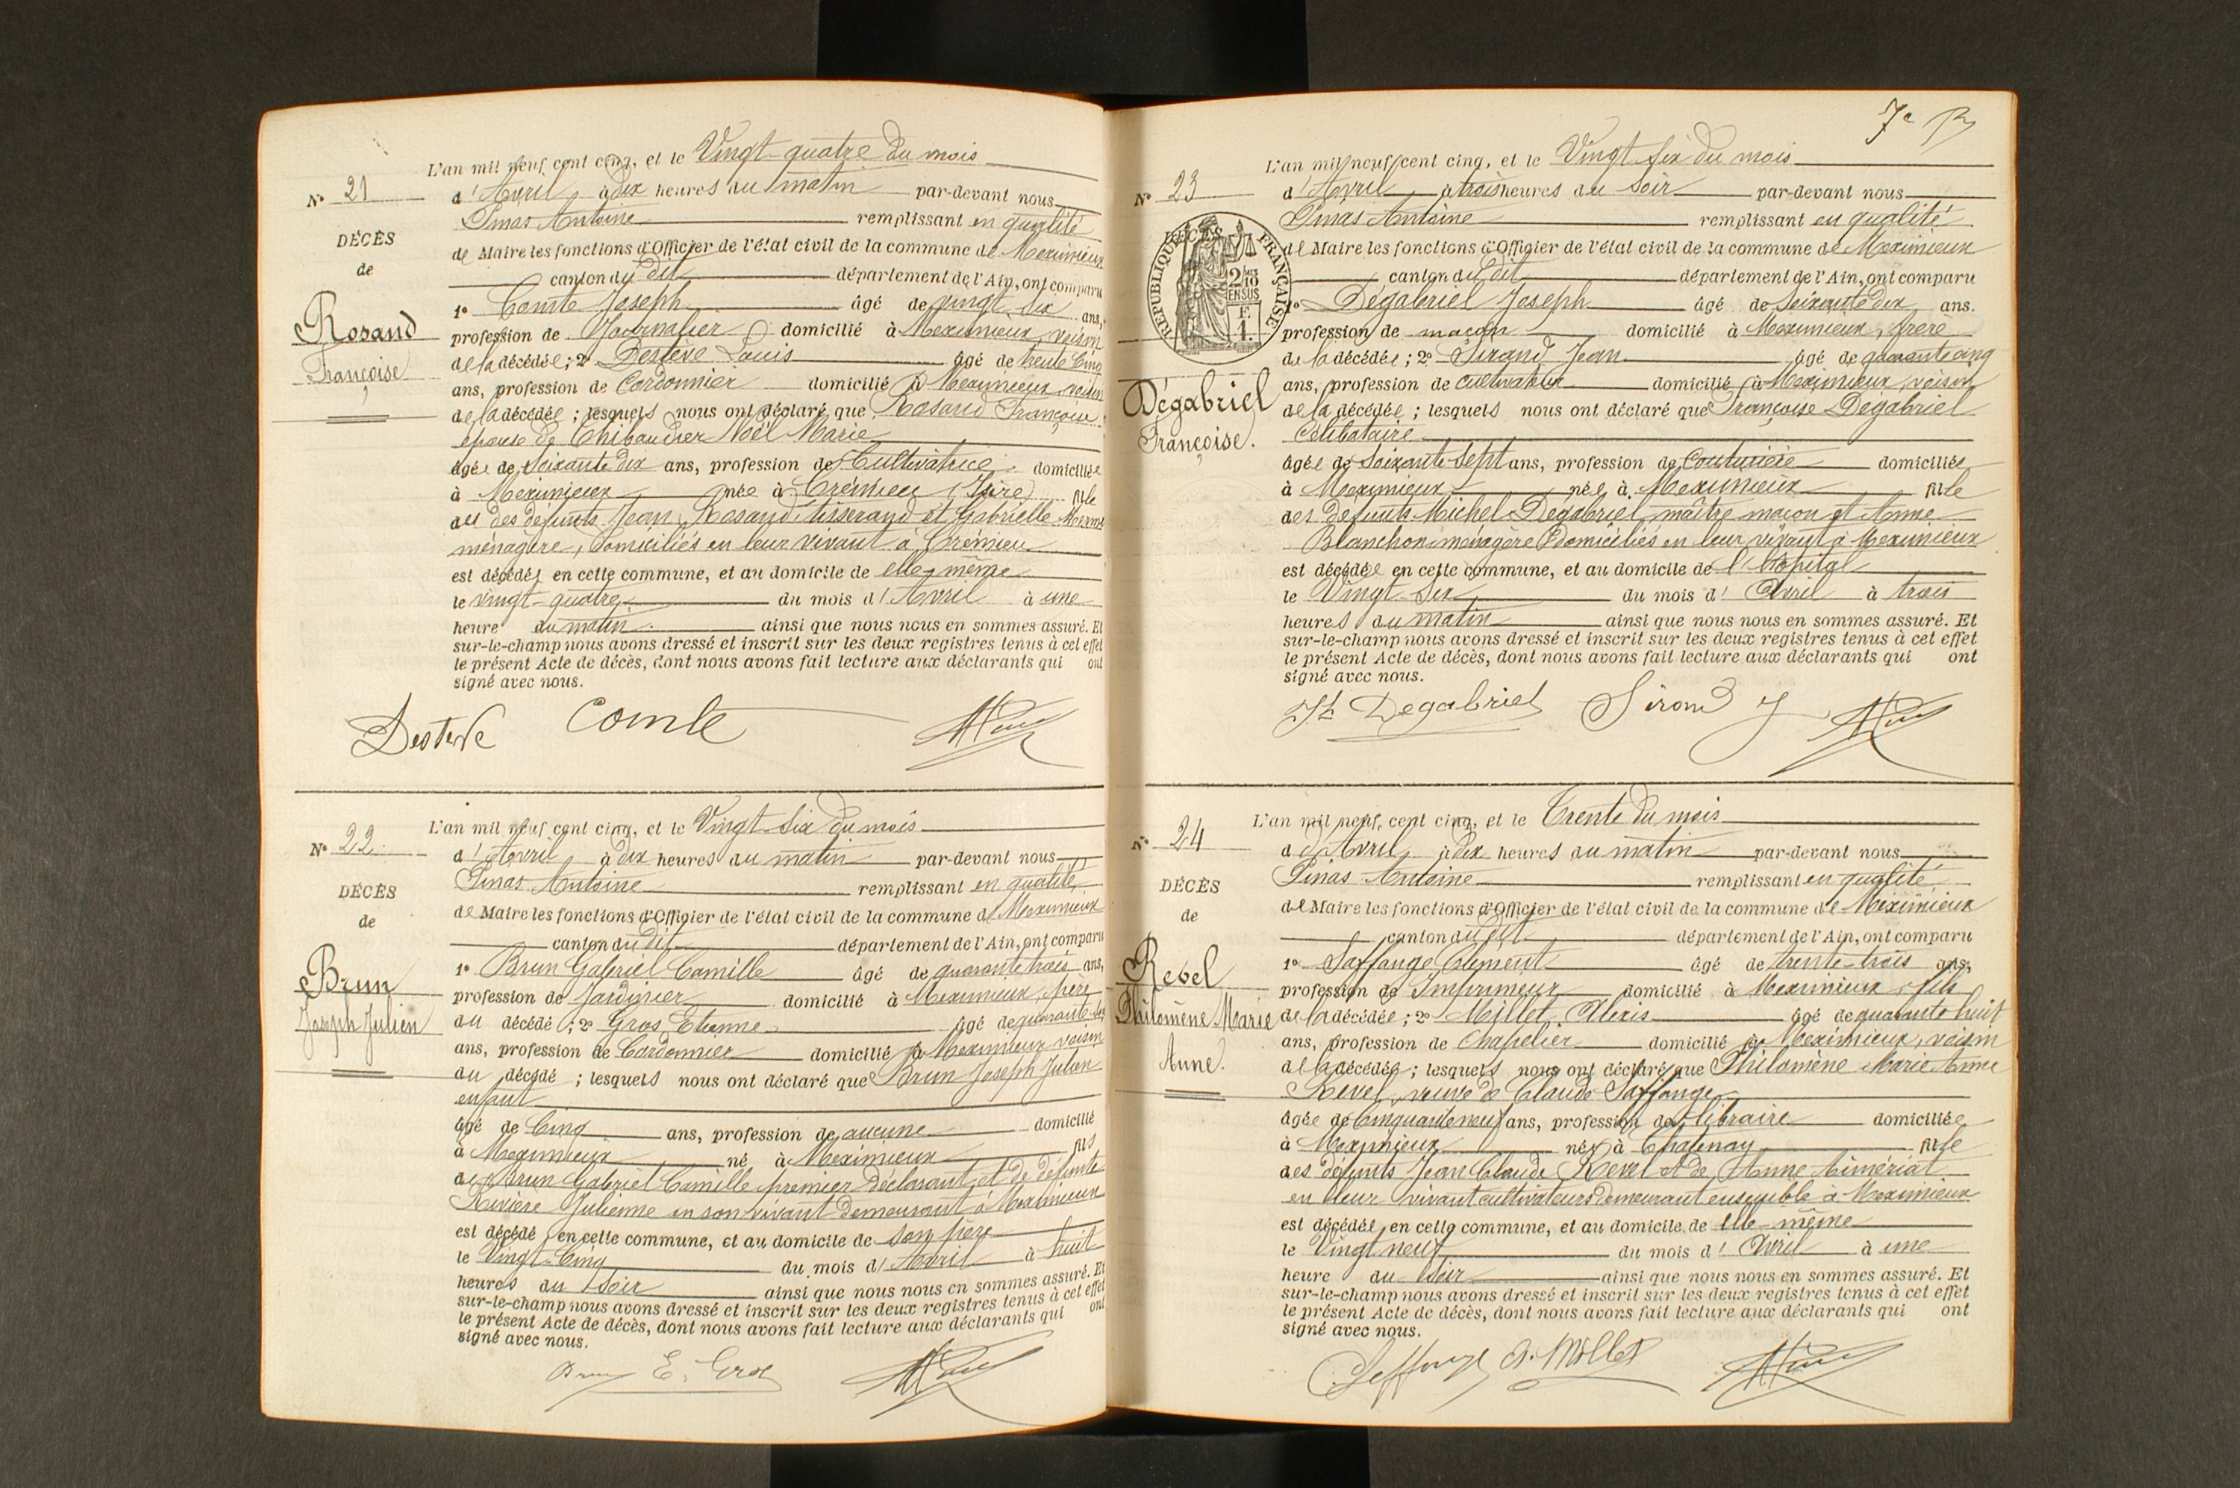 L'an mil neuf cent cinq, et le Vingt-quatre du mois
N° 21
d'Avril à dix heures du matin par-devant nous
Pinas Antoine remplissant en qualité
DÉCÈS
de Maire les fonctions d'Officier de l'état civil de la commune de Meximieux
de
canton du dit département de l'Ain, ont comparu
1° Comte Joseph âgé de vingt six ans,
Rosand
profession de Journalier domicilié à Meximieux, voisin
Françoise
de la décédée; 2° Destève Louis âgé de trente cinq
ans, profession de Cordonnier domicilié à Meximieux voisin
de la décédée; lesquels nous ont déclaré que Rosand Françoise
épouse de Thibaudier Noël Marie
âgée de Soixante dix ans, profession de Cultivatrice domiciliée
à Meximieux née à Crémieu (Isère) fille
des défunts Jean Rosand tisserand et Gabrielle
ménagère, domiciliés en leur vivant à Crémieu
est décédée en cette commune, et au domicile de elle-même
le vingt-quatre du mois d'Avril à une
heure du matin ainsi que nous nous en sommes assuré. Et
sur-le-champ nous avons dressé et inscrit sur les deux registres tenus à cet effet
le présent Acte de décès, dont nous avons fait lecture aux déclarants qui ont
signé avec nous.
Desteve Comte
L'an mil neuf cent cinq, et le Vingt-Six du mois
N° 22
d'Avril à dix heures du matin par-devant nous
Pinas Antoine remplissant en qualité
DÉCÈS
de Maire les fonctions d'Officier de l'état civil de la commune de Meximieux
de
canton du dit département de l'Ain, ont comparu
Brun
1° Brun Gabriel Camille âgé de quarante trois ans,
profession de Jardinier domicilié à Meximieux, père
Joseph Julien
du décédé; 2° Gros Etienne âgé de quarante
ans, profession de Cordonnier domicilié à Meximieux voisin
du décédé; lesquels nous ont déclaré que Brun Joseph Julien
enfant
âgé de Cinq ans, profession de aucune domicilié
à Meximieux né à Meximieux fils
de Brun Gabriel Camille premier déclarant et de défunte
Rivière Julienne en son vivant demeurant à Meximieux
est décédé en cette commune, et au domicile de son père
le Vingt-Cinq du mois d'Avril à huit
heures du soir ainsi que nous nous en sommes assuré. Et
sur-le-champ nous avons dressé et inscrit sur les deux registres tenus à cet effet
le présent Acte de décès, dont nous avons fait lecture aux déclarants qui ont
signé avec nous.
Brun E. Gros
7e
L'an mil neuf cent cinq, et le Vingt Six du mois
N° 23
d'Avril à trois heures du soir par-devant nous
Pinas Antoine remplissant en qualité
de Maire les fonctions d'Officier de l'état civil de la commune de Meximieux
RÉPUBLIQUE FRANÇAISE
2/10 EN SUS
F. 1.
canton du dit département de l'Ain, ont comparu
1° Dégabriel Joseph âgé de Soixante dix ans.
profession de maçon domicilié à Meximieux, frère
de la décédée; 2° Sirand Jean âgé de quarante cinq
Dégabriel
ans, profession de cultivateur domicilié à Meximieux, voisin
Françoise.
de la décédée; lesquels nous ont déclaré que Françoise Dégabriel
Célibataire
âgée de Soixante Sept ans, profession de Couturière domiciliée
à Meximieux née à Meximieux fille
des défunts Michel Dégabriel, maître maçon et Anne
Blanchon ménagère domiciliés en leur vivant à Meximieux
est décédée en cette commune, et au domicile de l'hôpital
le Vingt-Six du mois d'Avril à trois
heures du matin ainsi que nous nous en sommes assuré. Et
sur-le-champ nous avons dressé et inscrit sur les deux registres tenus à cet effet
le présent Acte de décès, dont nous avons fait lecture aux déclarants qui ont
signé avec nous.
Jh Degabriel Sirand J
L'an mil neuf cent cinq, et le Trente du mois
N° 24
d'Avril à dix heures du matin par-devant nous
Pinas Antoine remplissant en qualité
DÉCÈS
de Maire les fonctions d'Officier de l'état civil de la commune de Meximieux
de
canton du dit département de l'Ain, ont comparu
Revel
1° Saffange Clément âgé de trente-trois ans,
profession de Imprimeur domicilié à Meximieux, fils
Philomène Marie
de la décédée; 2° Millet Alexis âgé de quarante huit
ans, profession de Chapelier domicilié à Meximieux, voisin
Anne.
de la décédée; lesquels nous ont déclaré que Philomène Marie Anne
Revel, veuve de Claude Saffange
âgée de Cinquante neuf ans, profession de libraire domiciliée
à Meximieux née à Chatenay fille
des défunts Jean Claude Revel et de Anne Limériat
en leur vivant cultivateurs demeurant ensemble à Meximieux
est décédée en cette commune, et au domicile de elle-même
le Vingt neuf du mois d'Avril à une
heure du soir ainsi que nous nous en sommes assuré. Et
sur-le-champ nous avons dressé et inscrit sur les deux registres tenus à cet effet
le présent Acte de décès, dont nous avons fait lecture aux déclarants qui ont
signé avec nous.
Saffange A. Millet